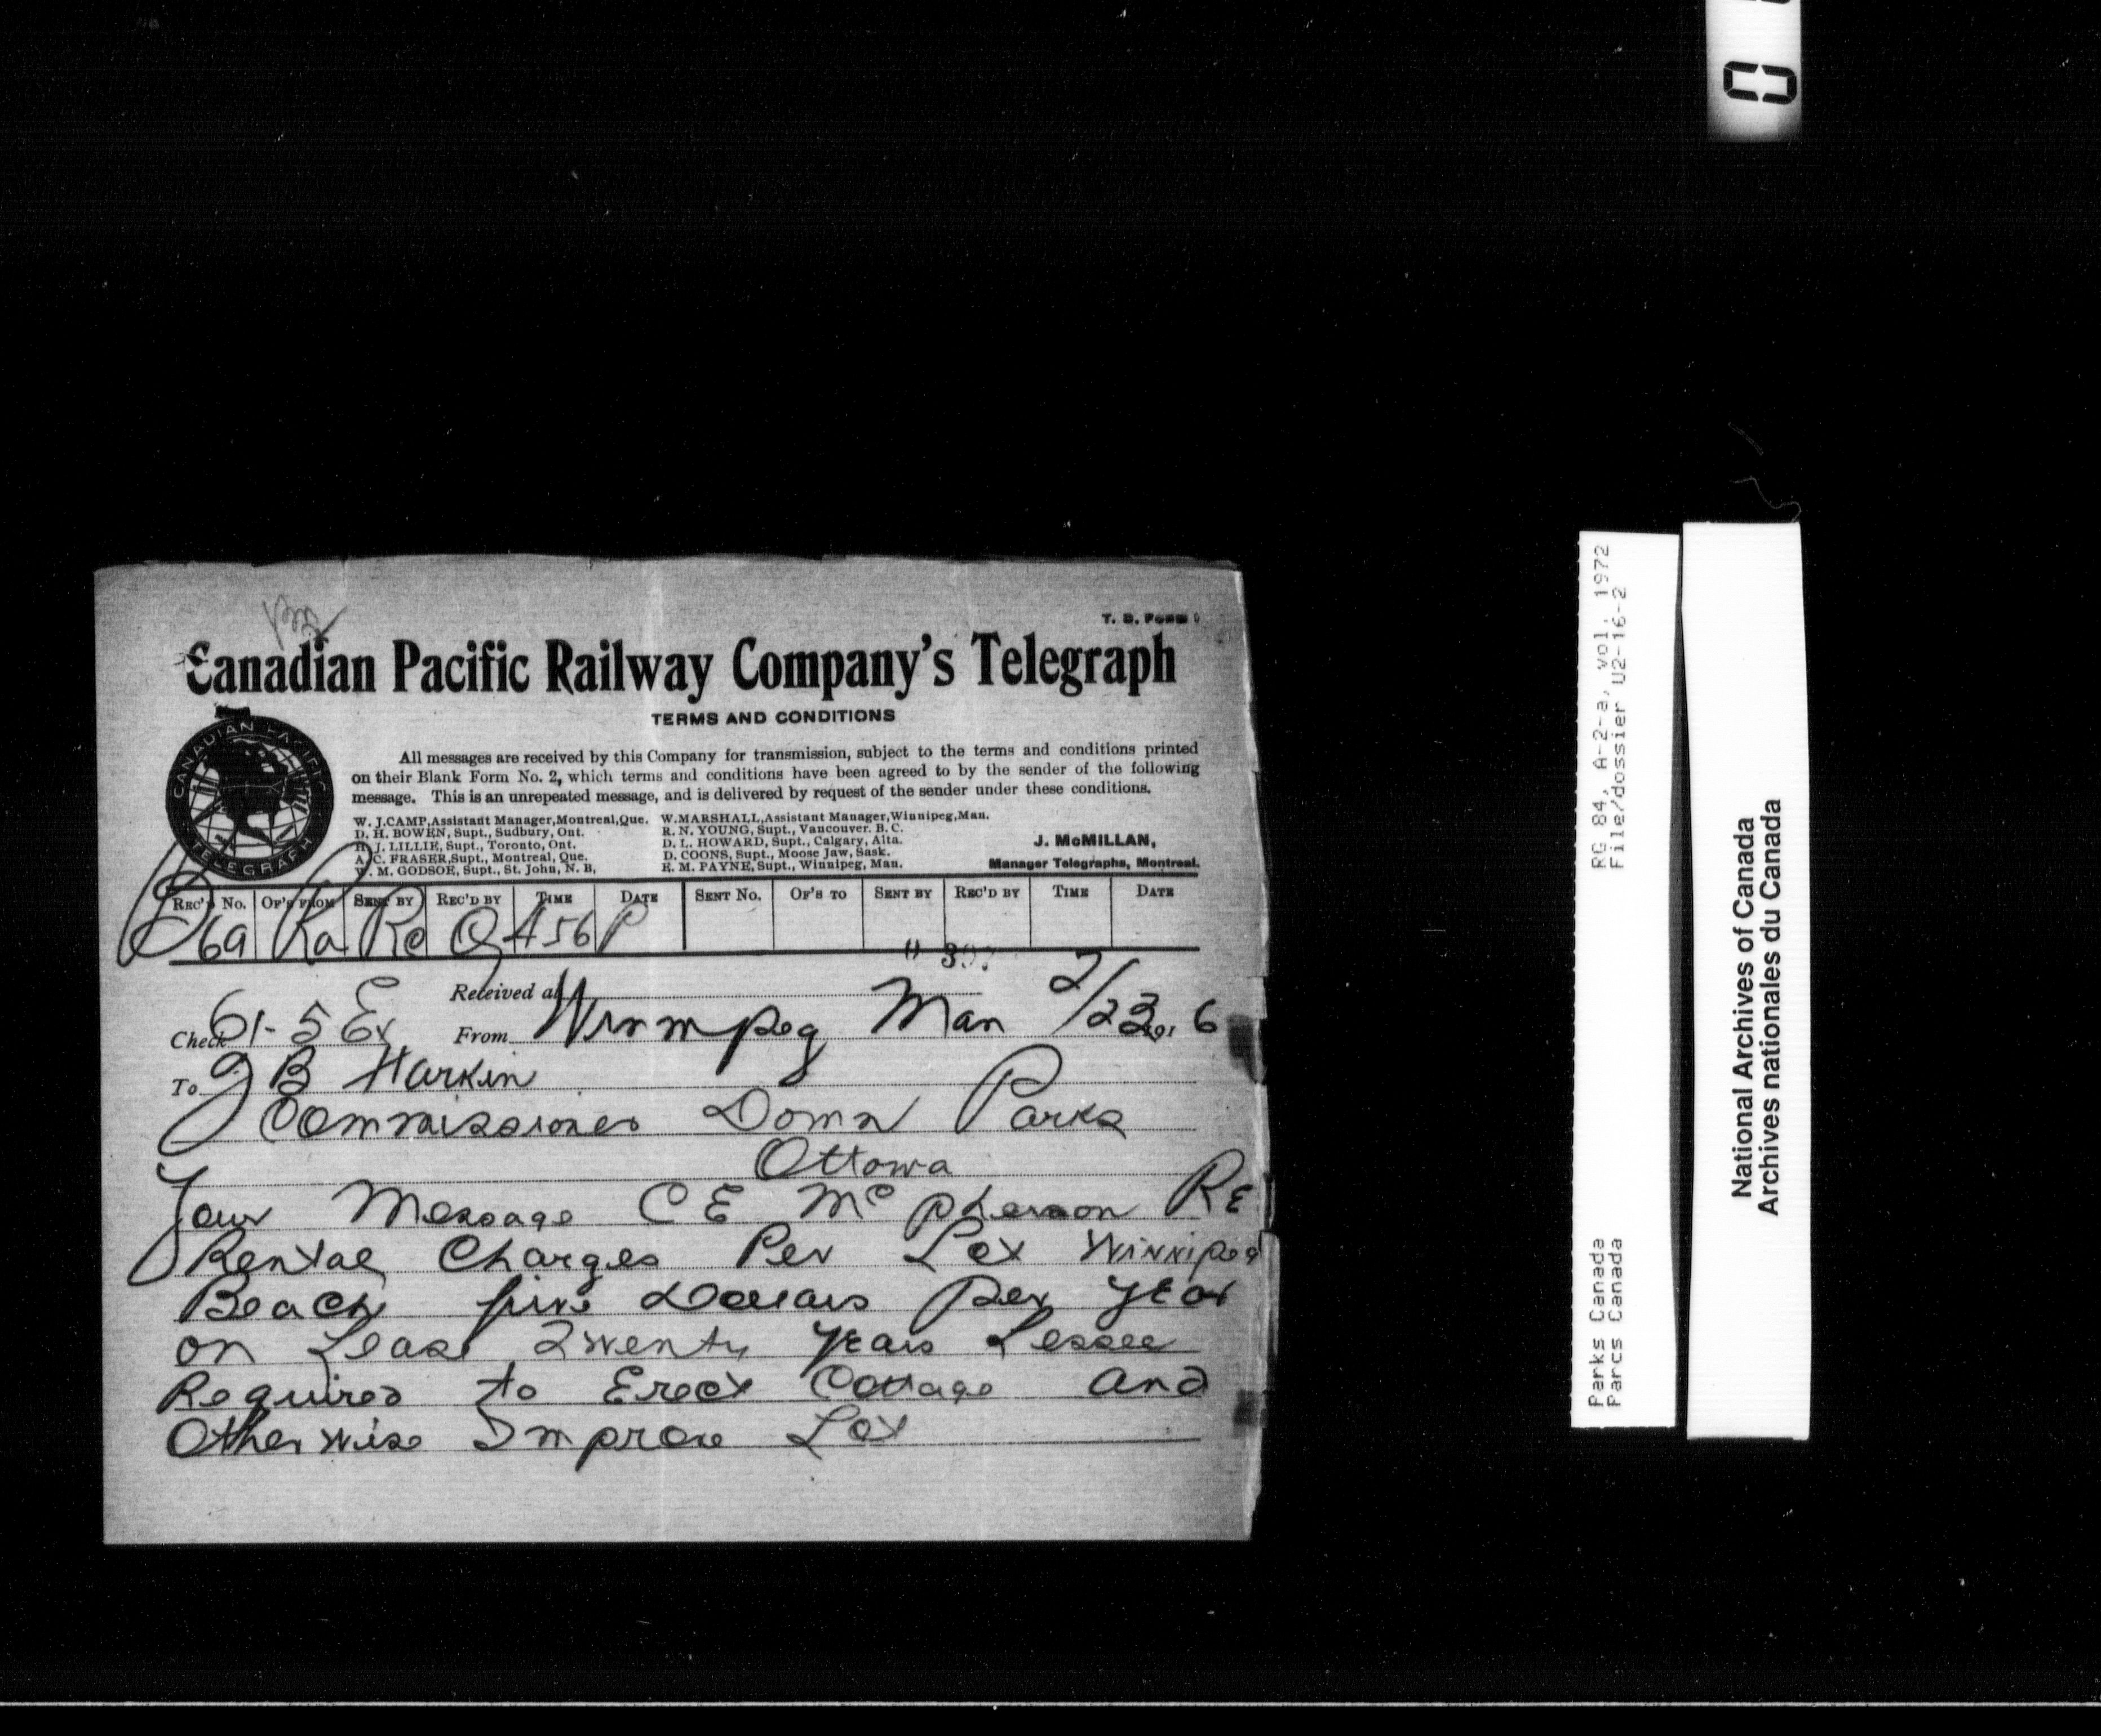 T. D. Form
Canadian Pacific Railway Company's Telegraph
TERMS AND CONDITIONS
CANADIAN PACIFIC
TELEGRAPH
All messages are received by this Company for transmission, subject to the terms and conditions printed
on their Blank Form No. 2, which terms and conditions have been agreed to by the sender of the following
message. This is an unrepeated message, and is delivered by request of the sender under these conditions.
W. J. CAMP, Assistant Manager, Montreal, Que.
D. H. BOWEN, Supt., Sudbury, Ont.
H. J. LILLIE, Supt., Toronto, Ont.
A. C. FRASER, Supt., Montreal, Que.
W. M. GODSOE, Supt., St. John, N. B.
W. MARSHALL, Assistant Manager, Winnipeg, Man.
R. N. YOUNG, Supt., Vancouver. B. C.
D. L. HOWARD, Supt., Calgary, Alta.
D. COONS, Supt., Moose Jaw, Sask.
E. M. PAYNE, Supt., Winnipeg, Man.
J. McMILLAN,
Manager Telegraphs, Montreal.
REC'D No. OF'S FROM SENT BY REC'D BY TIME DATE SENT No. OF'S TO SENT BY REC'D BY TIME DATE
69 Ra Rc 456 P
Received at
Check 61-5 Ex From Winnipeg Man 2/23 191 6
To J B Harkin
Commissioner Domn Parks
Ottawa
Your Message C E McPherson RE
Rental Charges Per Lot Winnipeg
Beach five Dollars Per Year
on Lease Twenty Years Lessee
Required to Erect Cottage and
Otherwise Improve Lot
RG 84, A-2-a, vol. 1972
File/dossier U2-16-2
Parks Canada
Parcs Canada
National Archives of Canada
Archives nationales du Canada